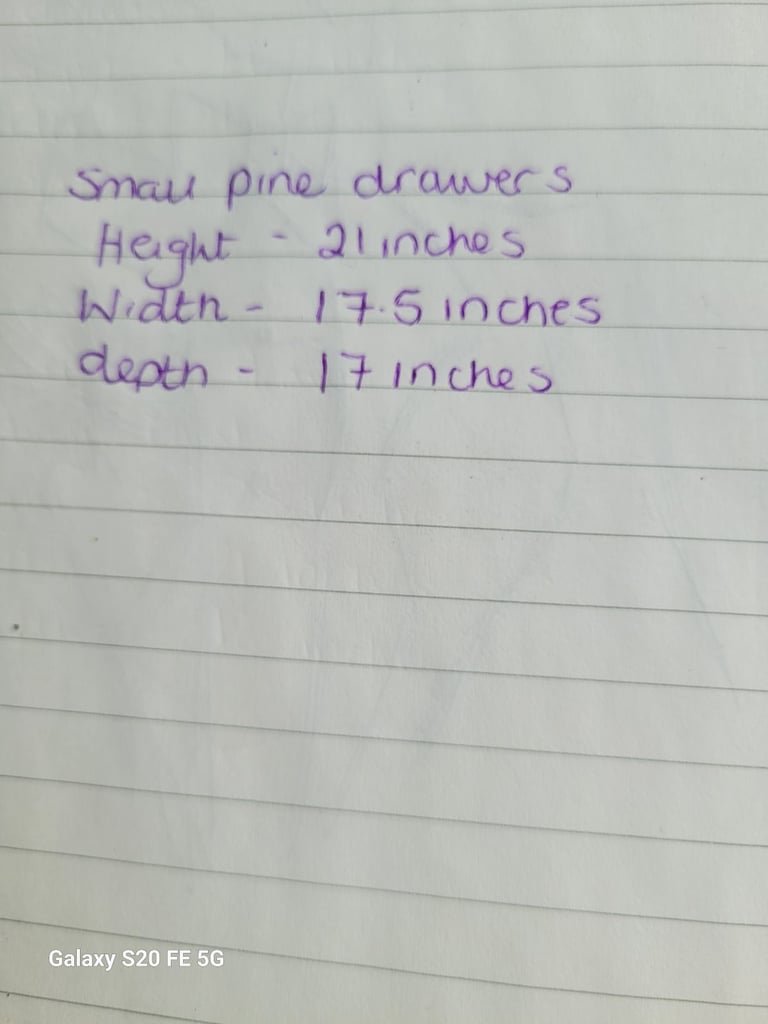 Small pine drawers
Height - 21 inches
Width - 17.5 inches
depth - 17 inches
Galaxy S20 FE 5G